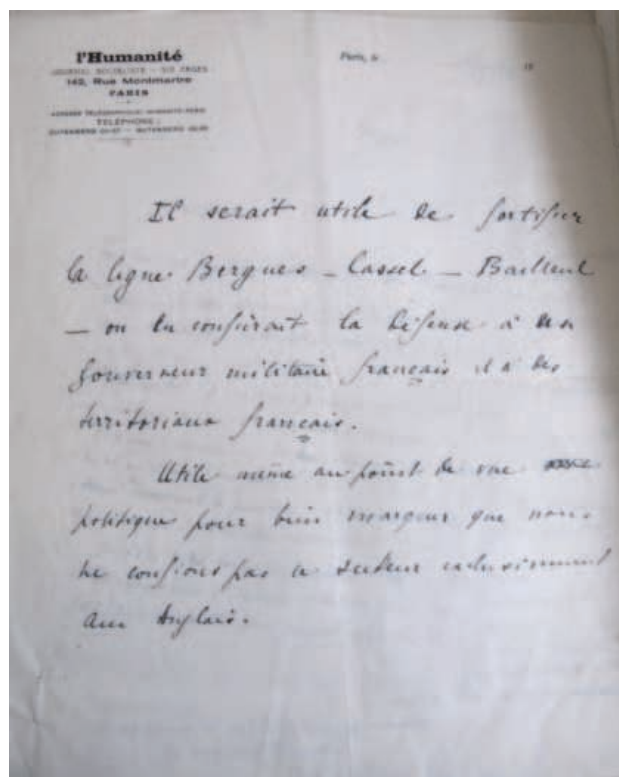 l'Humanité
JOURNAL SOCIALISTE
142, Rue Montmartre
PARIS
TÉLÉPHONE :
Paris, le
19
Il serait utile de fortifier
la ligne Bergues — Cassel — Bailleul
— on en confierait la défense à un
gouverneur militaire français et à des
territoriaux français.
Utile même au point de vue
politique pour bien marquer que nous
ne confions pas ce secteur exclusivement
aux Anglais.